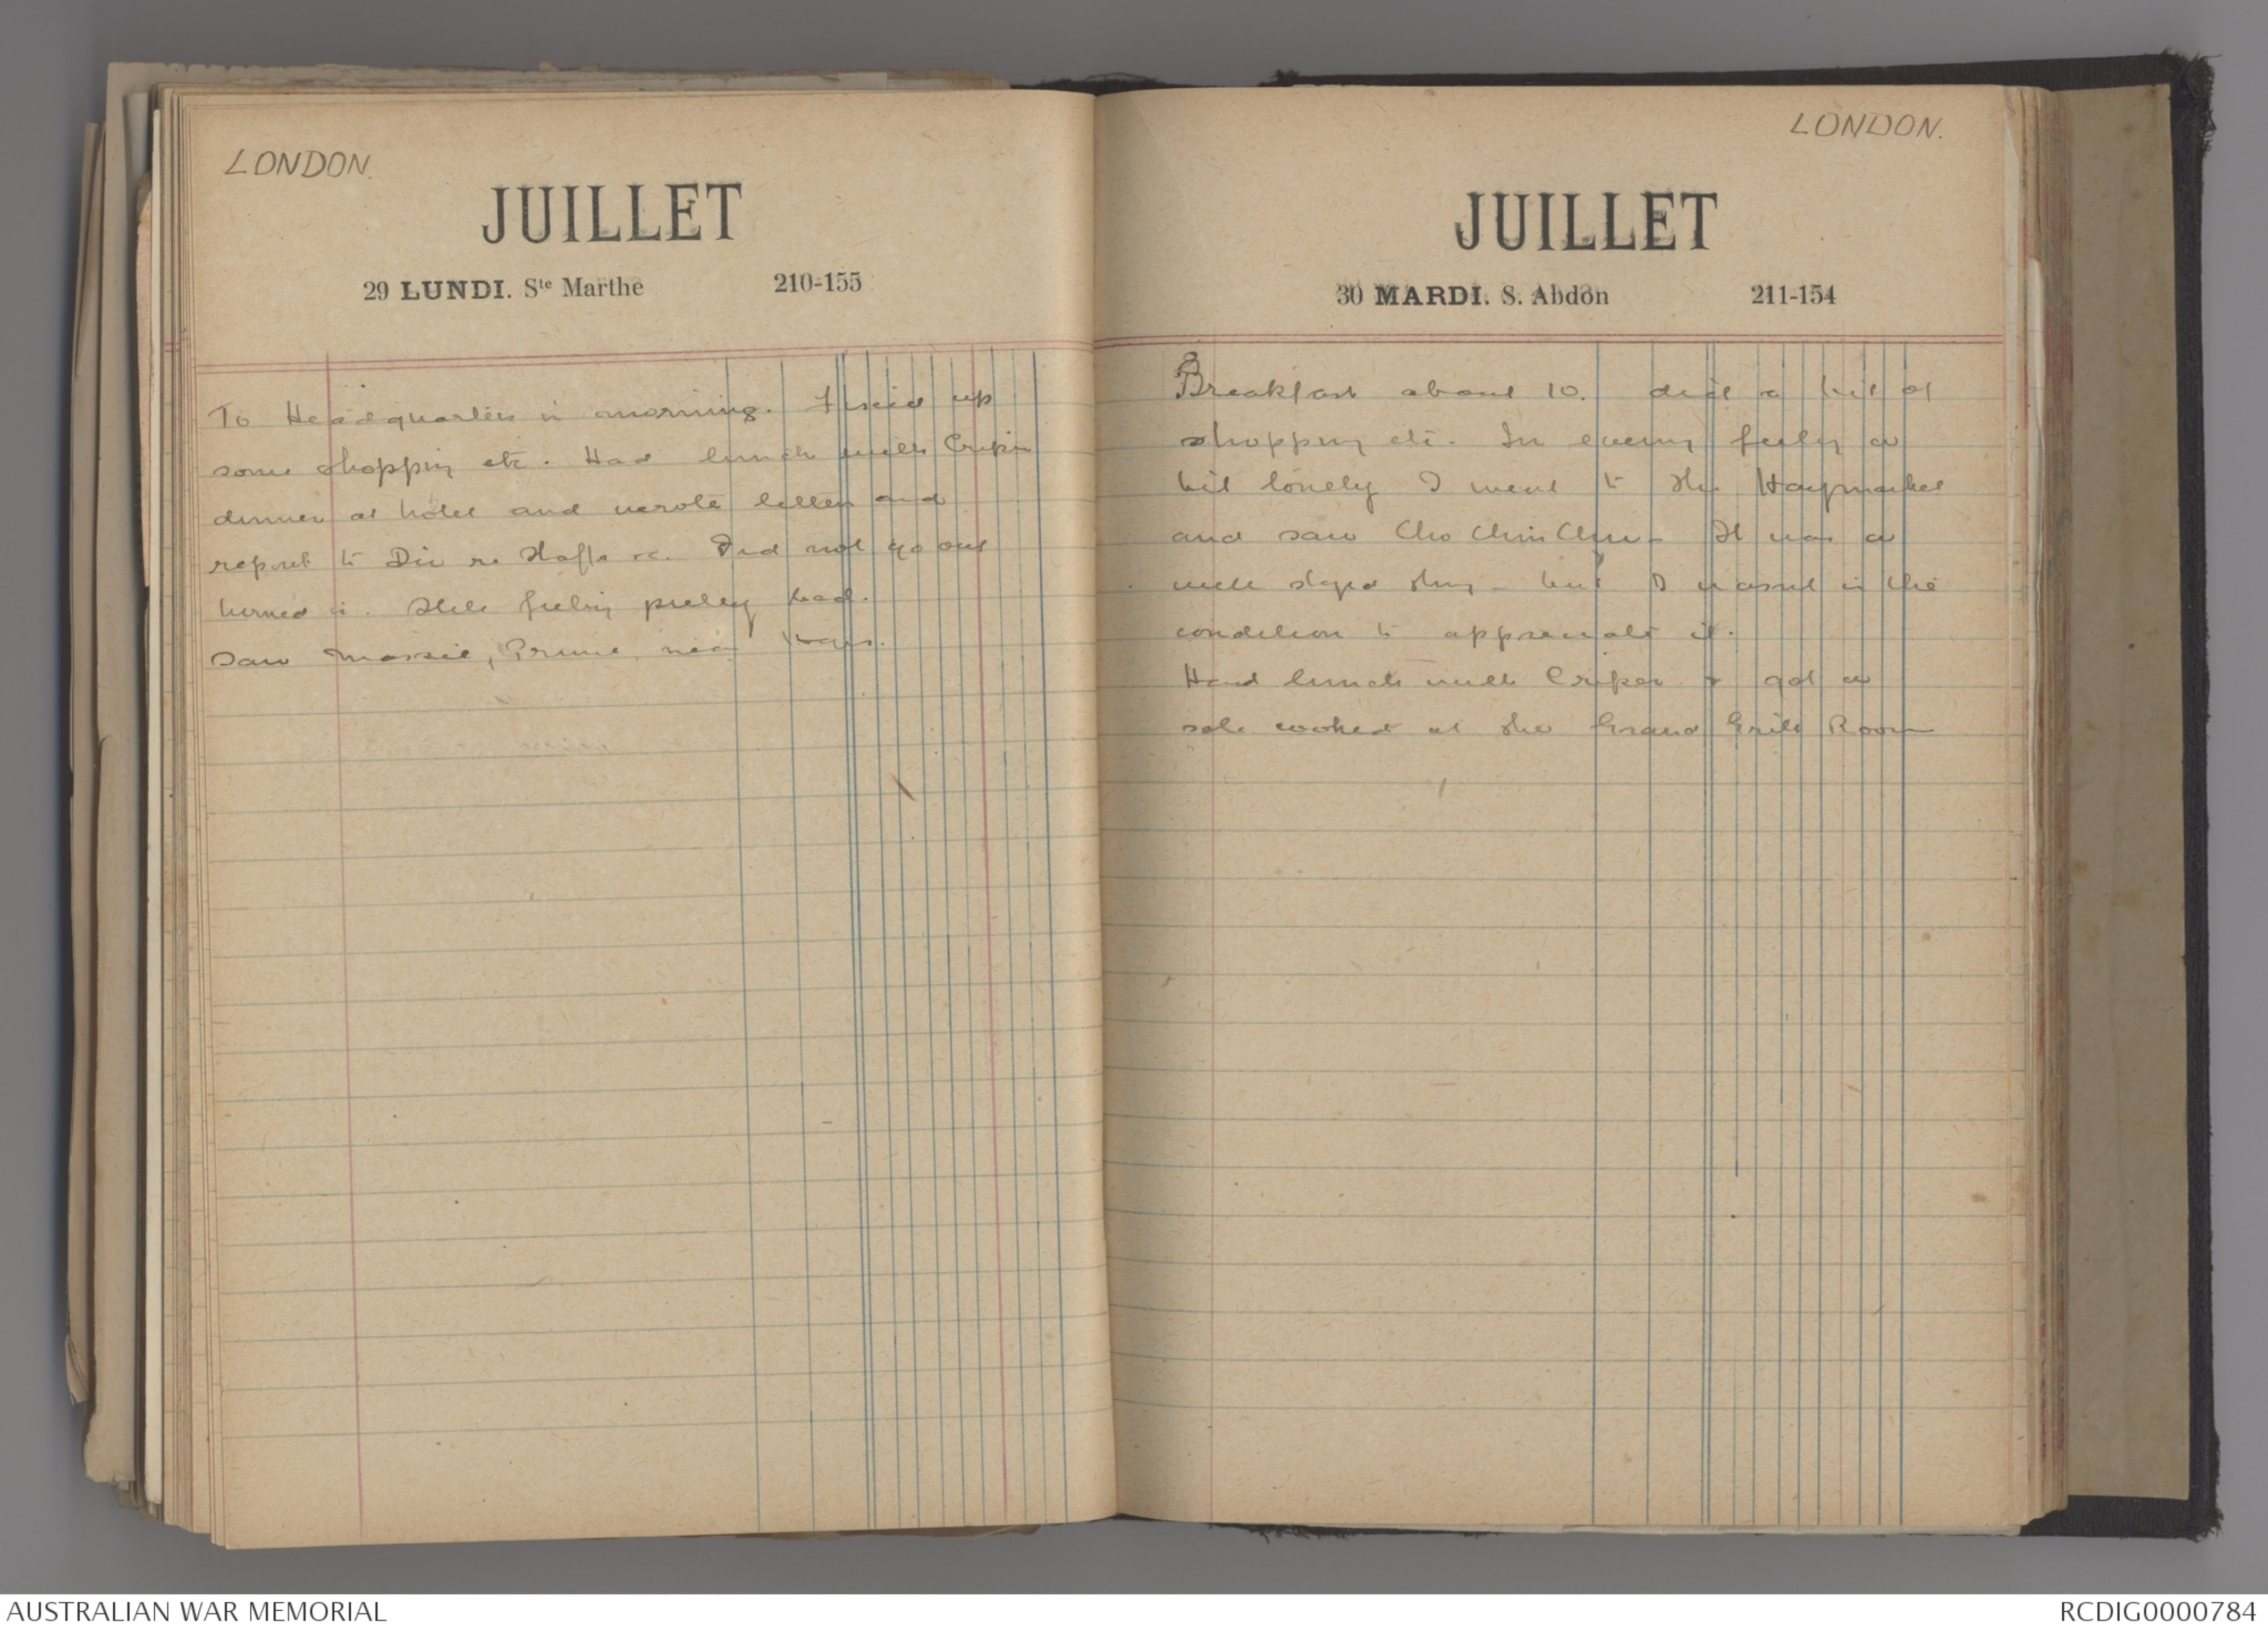 LONDON.
JUILLET
29 LUNDI. Ste Marthe 210-155
To Headquarters in morning. Fixed up
some shopping etc. Had lunch with
dinner at hotel and wrote letters and
report to Div re Staffs &c. Did not go out
turned in. Still feeling pretty bad.
Saw Massie,
LONDON.
JUILLET
30 MARDI. S. Abdon 211-154
Breakfast about 10. did a bit of
shopping etc. In evening feeling a
bit lonely I went to the Haymarket
and saw Chu Chin Chow - It was a
well staged thing - but I wasnt in the
condition to appreciate it.
Had lunch with & got a
sole cooked at the Grand Grill Room
AUSTRALIAN WAR MEMORIAL
RCDIG0000784